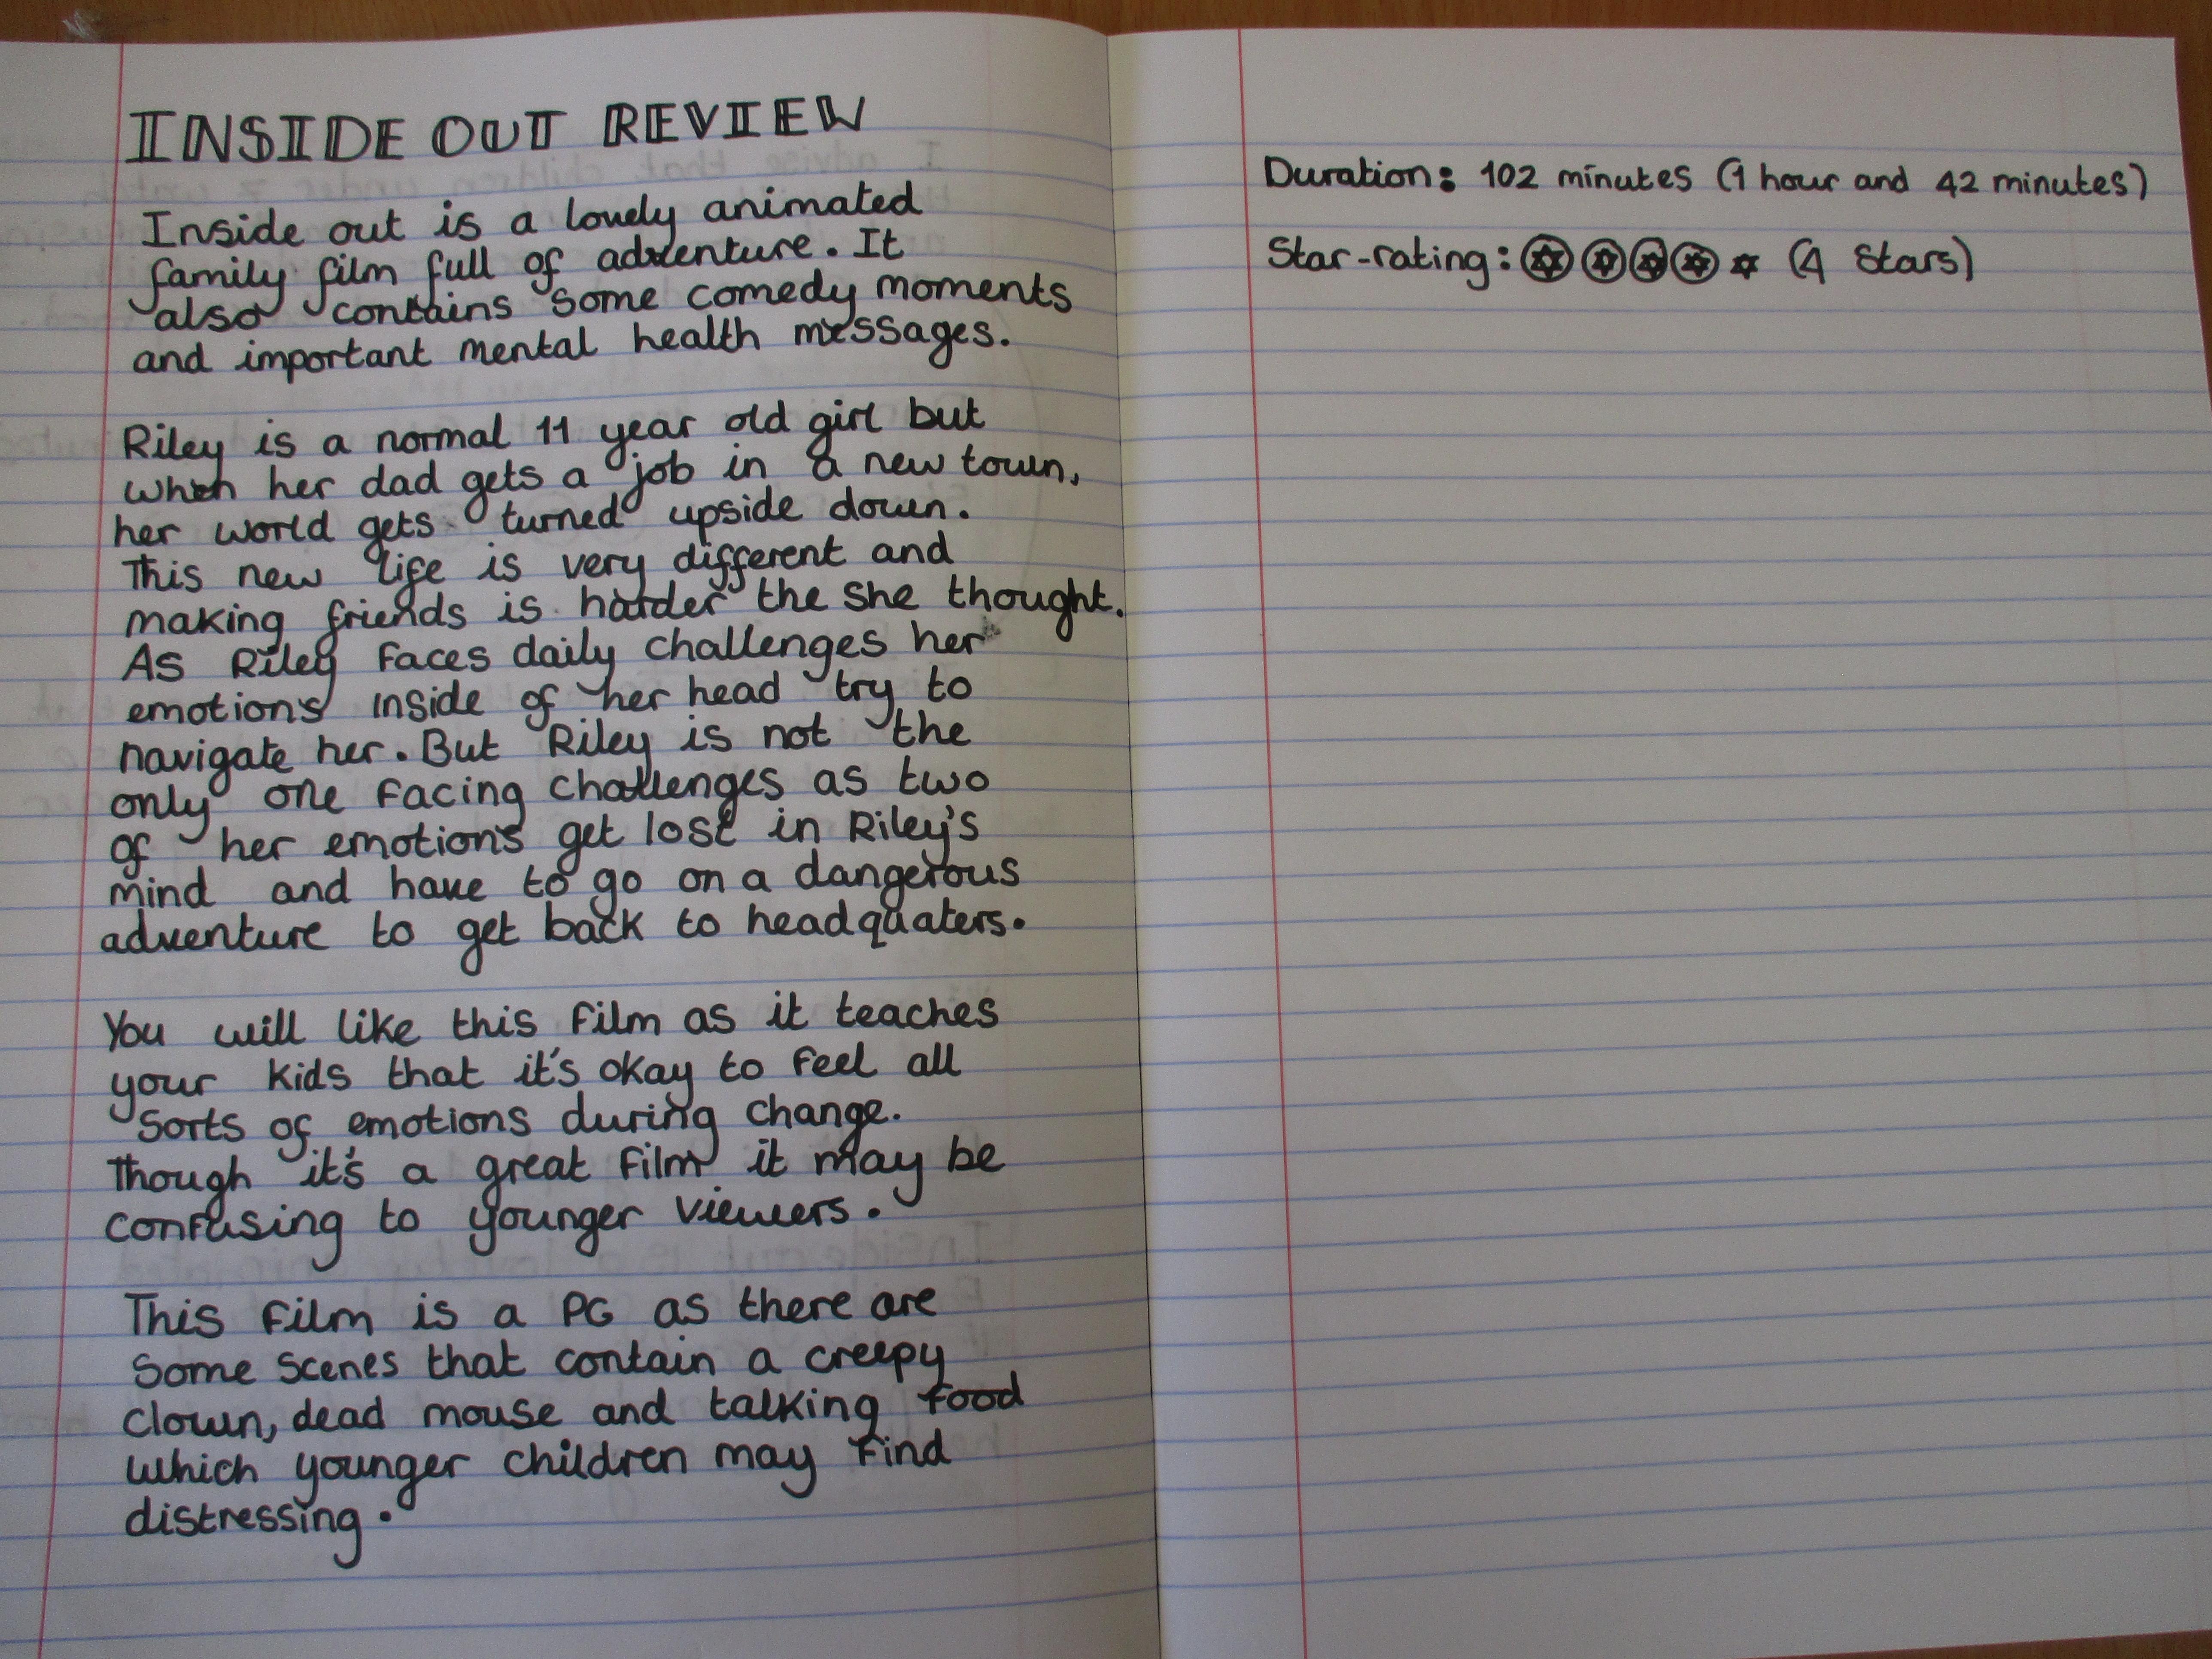 INSIDE OUT REVIEW
Inside out is a lovely animated
family film full of adventure. It
also contains some comedy moments
and important mental health messages.
Riley is a normal 11 year old girl but
when her dad gets a job in a new town,
her world gets turned upside down.
This new life is very different and
making friends is harder the she thought.
As Riley faces daily challenges her
emotions inside of her head try to
navigate her. But Riley is not the
only one facing challenges as two
of her emotions get lost in Riley's
mind and have to go on a dangerous
adventure to get back to headquaters.
You will like this film as it teaches
your kids that it's okay to feel all
sorts of emotions during change.
Though it's a great film it may be
confusing to younger viewers.
This film is a PG as there are
some scenes that contain a creepy
clown, dead mouse and talking food
which younger children may find
distressing.
Duration: 102 minutes (1 hour and 42 minutes)
Star-rating: ✪✪✪✪⋆ (4 Stars)